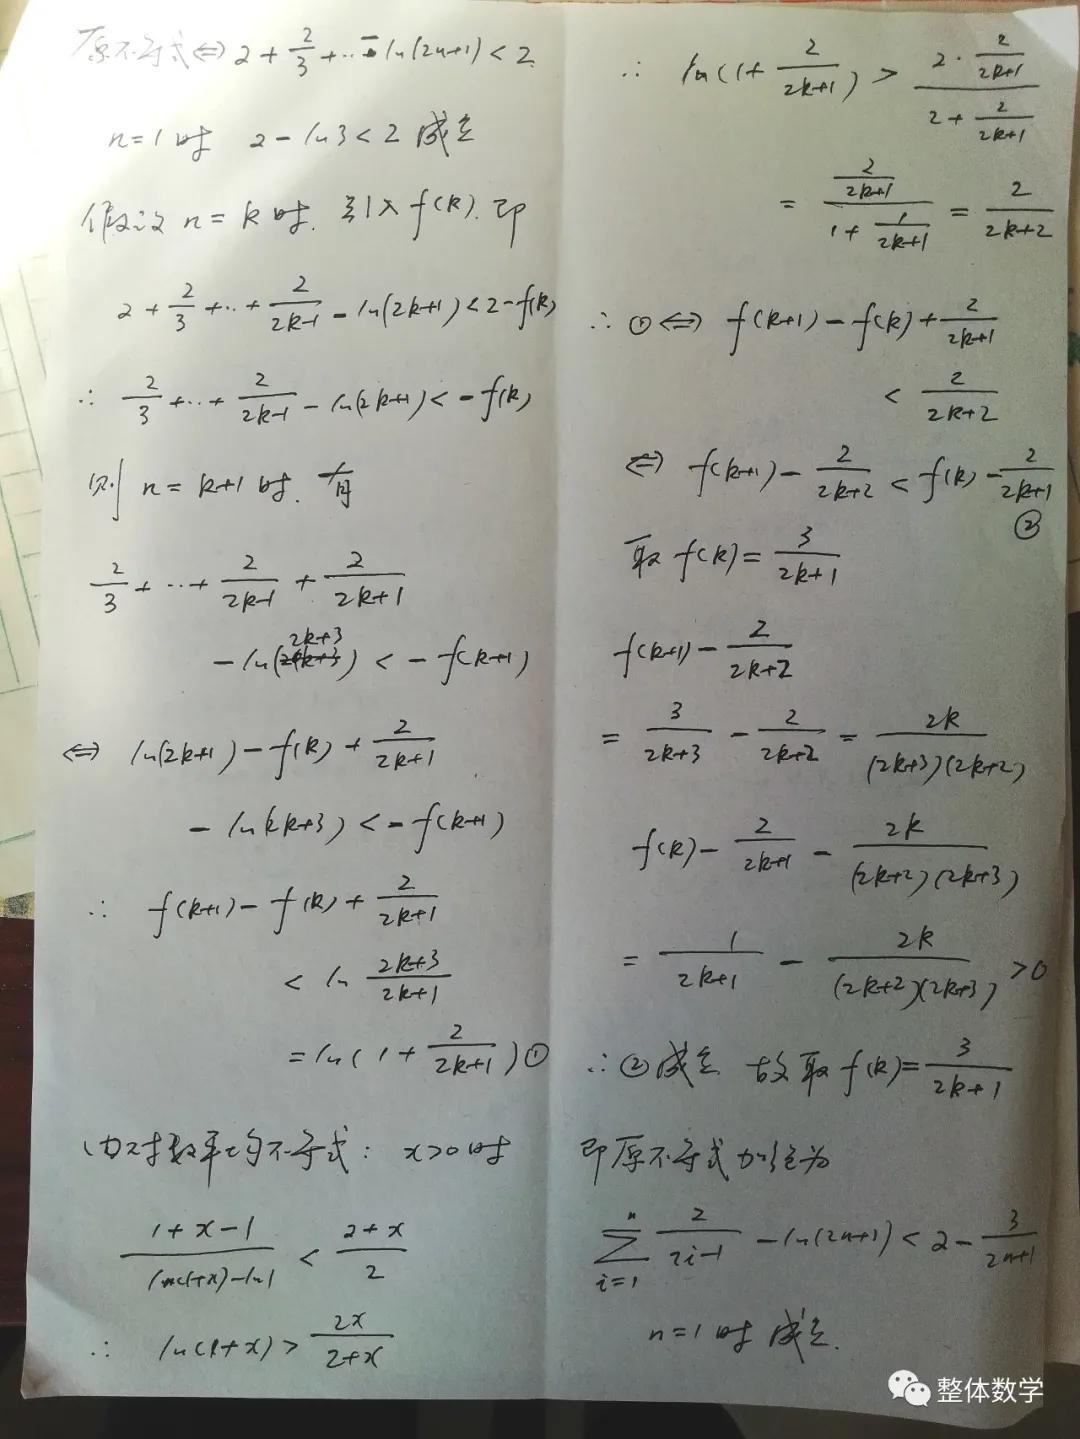 原不等式⇔ 2 + 2/3 + ... - ln(2n+1) < 2
n=1时 2 - ln3 < 2 成立
假设 n = k 时. 引入 f(k). 即
2 + 2/3 + ... + 2/(2k-1) - ln(2k+1) < 2 - f(k)
∴ 2/3 + ... + 2/(2k-1) - ln(2k+1) < - f(k)
则 n = k+1 时. 有
2/3 + ... + 2/(2k-1) + 2/(2k+1)
- ln(2k+3) < - f(k+1)
⇔ ln(2k+1) - f(k) + 2/(2k+1)
- ln(2k+3) < - f(k+1)
∴ f(k+1) - f(k) + 2/(2k+1)
< ln (2k+3)/(2k+1)
= ln(1 + 2/(2k+1)) ①
由对数平均不等式: x>0时
(1+x-1)/(ln(1+x)-ln1) < (2+x)/2
∴ ln(1+x) > 2x/(2+x)
∴ ln(1 + 2/(2k+1)) > (2·2/(2k+1))/(2 + 2/(2k+1))
= (2/(2k+1))/(1 + 1/(2k+1)) = 2/(2k+2)
∴ ① ⇔ f(k+1) - f(k) + 2/(2k+1)
< 2/(2k+2)
⇔ f(k+1) - 2/(2k+2) < f(k) - 2/(2k+1) ②
取 f(k) = 3/(2k+1)
f(k+1) - 2/(2k+2)
= 3/(2k+3) - 2/(2k+2) = 2k/((2k+3)(2k+2))
f(k) - 2/(2k+1) - 2k/((2k+2)(2k+3))
= 1/(2k+1) - 2k/((2k+2)(2k+3)) > 0
∴ ②成立 故取 f(k) = 3/(2k+1)
即原不等式加强为
∑_{i=1}^{n} 2/(2i-1) - ln(2n+1) < 2 - 3/(2n+1)
n=1时 成立.
整体数学